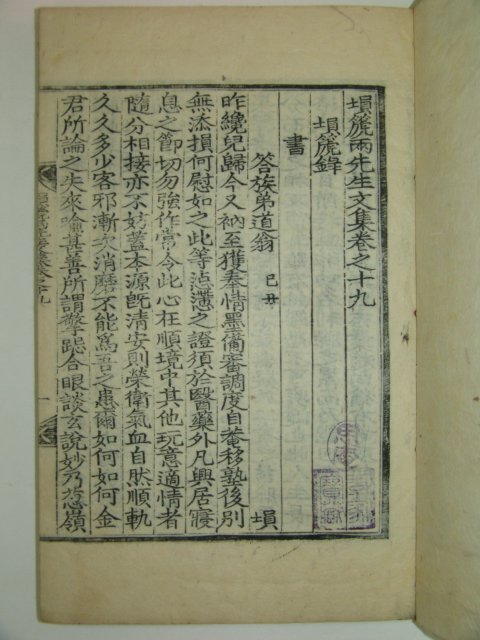 塤篪兩先生文集卷之十九
塤篪錄
書
答族弟道翁 己丑 塤
昨纔兒歸今又衲至獲奉情墨蔔審調度自菴移塾後別
無添損何慰如之此等㤼懣之證須於醫藥外凡興居寢
息之節切勿強作常令此心在順境中其他玩意適情者
隨分相接亦不妨蓋本源旣清安則榮衛氣血自然順軌
久久多少客邪漸次消磨不能爲吾之患爾如何如何金
君所論之失來喩甚善所謂擎跽合眼談玄說妙乃葱嶺